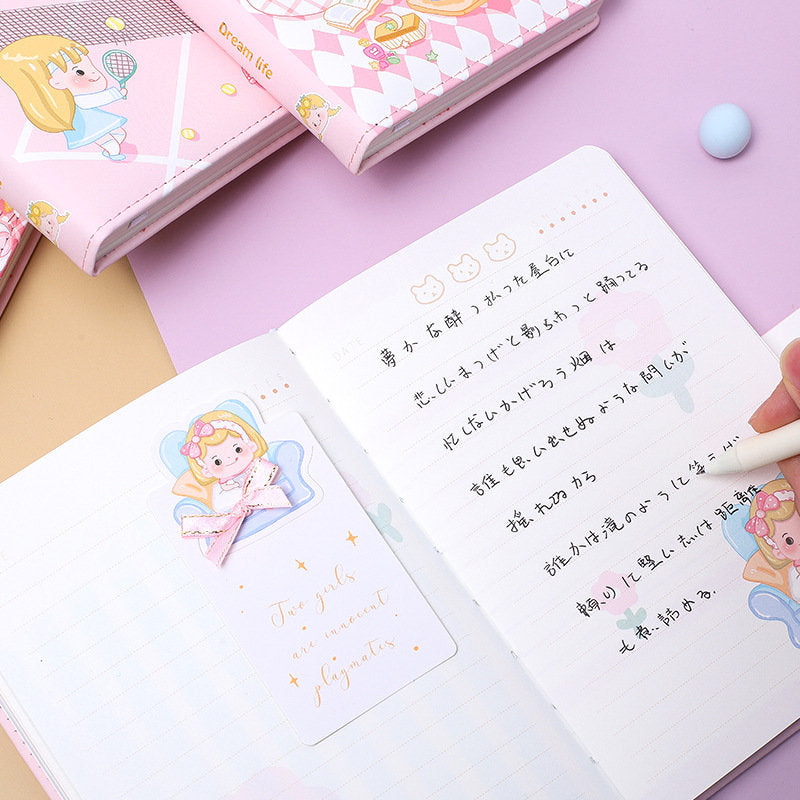 Dream life
DATE
夢かな酔っ払った屋台に
悲しいまつげと剔ちわっと踊ってる
忙しないかげろう畑は
誰も思い出せぬような問いが
揺れぬから
誰かは滝のように笑うが
頼りに堅い志は 距離度
も煮、諦める。
Two girls
are innocent
playmates